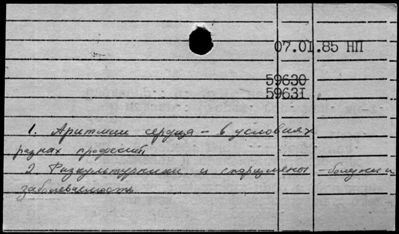 07.01.85 НП
59630
59631
1. Аритмии сердца – в условиях
разных профессий
2. Физкультурники и спортсмены – болезни и
заболеваемость